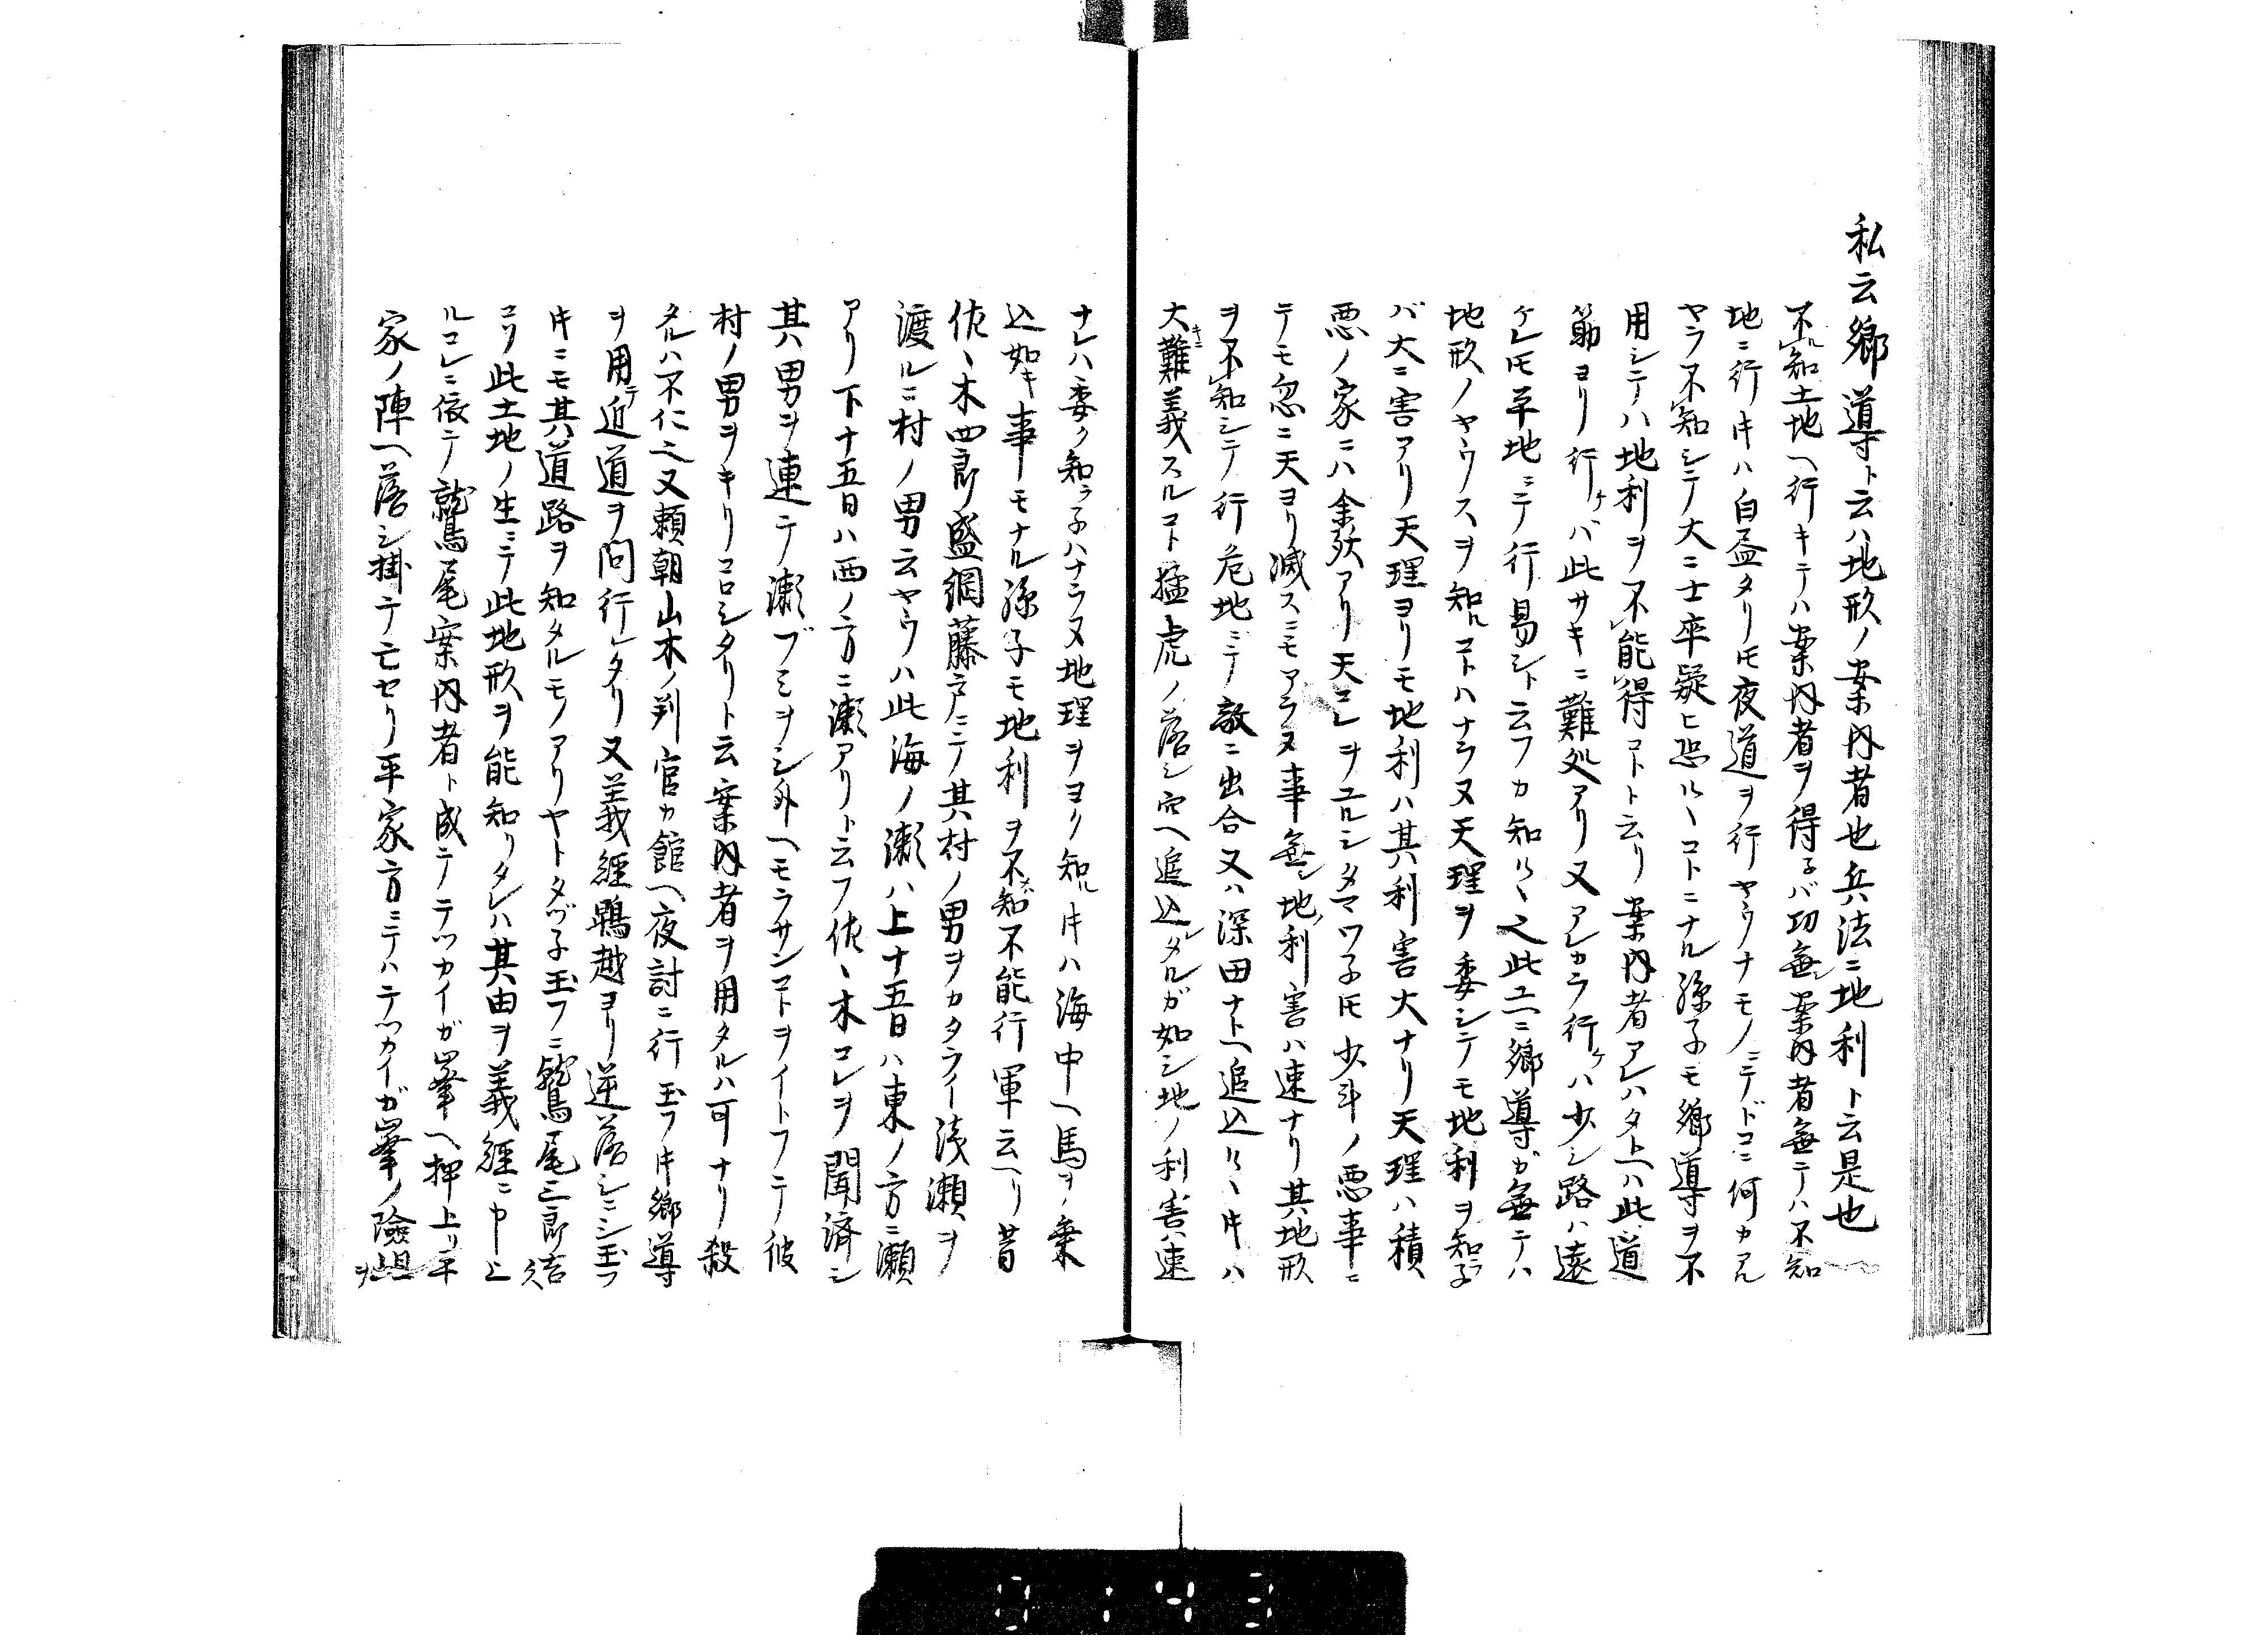 私云鄉導ト云ハ地形ノ案内者也兵法ニ地利ト云是也
不ル知土地ヘ行キテハ案内者ヲ得子バ功無シ案内者無テハ不知
地ニ行キハ白昼タリ𪜈夜道ヲ行ヤウナモノニテドコニ何カアル
ヤラ不知シテ大ニ士卒疑ヒ恐ルヽコトニナル孫子モ鄉導ヲ不
用シテハ地利ヲ不能得コトト云リ案内者アレハタトヘハ此道
筋ヨリ行ケバ此サキニ難処アリ又アレカラ行ケハ少シ路ハ遠
ケレ𪜈平地ニテ行易シト云フカ知ルヽ之此ユヘニ鄉導ガ無テハ
地形ノヤウスヲ知ルコトハナラヌ天理ヲ委シテモ地利ヲ知ラ子
バ大ニ害アリ天理ヨリモ地利ハ其利害大ナリ天理ハ積
悪ノ家ニハ余殃アリ天コレヲユルシタマワ子𪜈少斗ノ悪事ニ
テモ忽ニ天ヨリ滅スニモアラヌ事無シ地ノ利害ハ速ナリ其地形
ヲ不知シテ行危地ニテ敵ニ出合又ハ深田ナトヘ追込ルヽキハ
大キニ難義スルコト猛虎ノ落シ穴ヘ追込レタルガ如シ地ノ利害ハ速
ナレハ委ク知ラ子ハナラヌ地理ヲヨク知ルキハ海中ヘ馬ヲノ乗
込如キ事モナル孫子モ地利ヲ不知不能行軍云ヘリ昔
佐ヽ木四郎盛綱藤戸ニテ其村ノ男ヲカタライ浅瀬ヲ
渡ルニ村ノ男云ヤウハ此海ノ瀬ハ上十五日ハ東ノ方ニ瀬
アリ下十五日ハ西ノ方ニ瀬アリト云フ佐ヽ木コレヲ聞済シ
其男ヲ連テ瀬ブミヲシ外ヘモラサンコトヲイトフテ彼
村ノ男ヲキリコロシタリト云案内者ヲ用タルハ可ナリ殺
タルハ不仁之又頼朝山木ノ判官カ館ヘ夜討ニ行玉フキ鄉導
ヲ用テ近道ヲ問行レタリ又義経鵯越ヨリ逆落シニシ玉フ
キニモ其道路ヲ知タルモノアリヤトタヅ子玉フニ鷲尾三郎吉久
コリ此土地ノ生ニテ此地形ヲ能知リタレハ其由ヲ義経ニ申上
ルコレニ依テ鷲尾案内者ト成テテツカイガ峯ヘ押上リ平
家ノ陣ヘ落シ掛テ亡セリ平家方ニテハテツカイガ峯ノ険岨ヲ